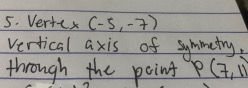 5. Vertex (-5,-7)
Vertical axis of symmetry.
through the point P(7,11)